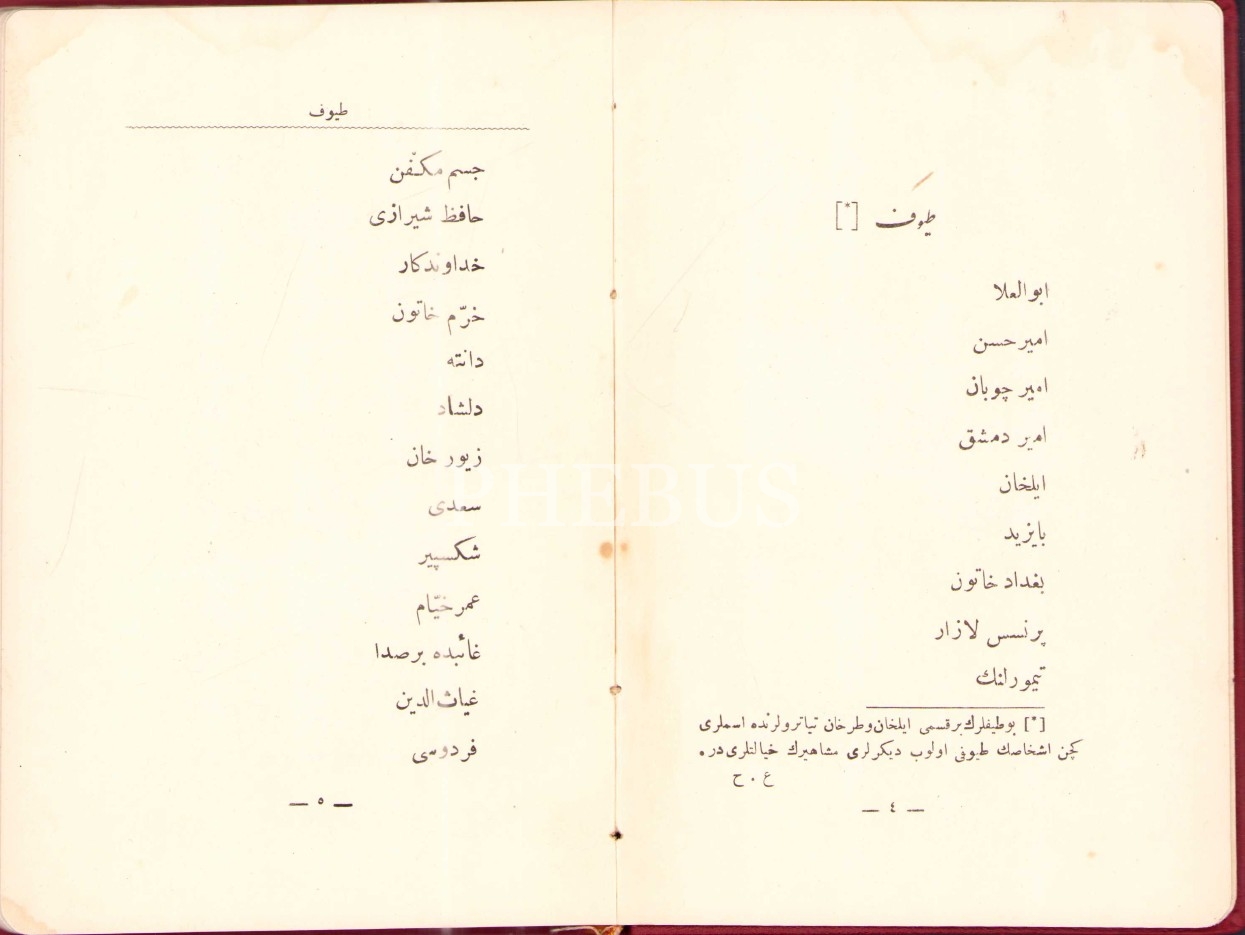 طيوف [*]
ابوالعلا
امير حسن
امير چوبان
امير دمشق
ايلخان
بايزيد
بغداد خاتون
پرنسس لازار
تيمورلنك
[*] بو طيفلرك بر قسمى ايلخان وطرخان تياترولرنده اسملرى
كچن اشخاصك طيوفى اولوب ديكرلرى مشاهيرك خيالتلرى در.
ع . ح
— ٤ —
طيوف
جسم مكفّن
حافظ شيرازى
خداوندكار
خرّم خاتون
دانته
دلشاد
زيور خان
سعدى
شكسپير
عمر خيّام
غائبده بر صدا
غياث الدين
فردوسى
— ٥ —
PHEBUS